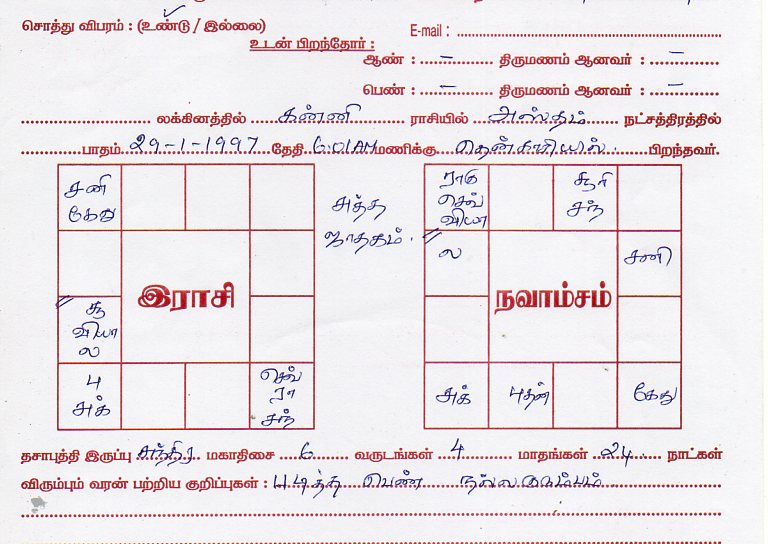 சொத்து விபரம் : (உண்டு / இல்லை)
E-mail :
உடன் பிறந்தோர் :
ஆண் : – திருமணம் ஆனவர் : –
பெண் : – திருமணம் ஆனவர் : –
லக்கினத்தில் கன்னி ராசியில் அஸ்தம் நட்சத்திரத்தில்
பாதம் 29-1-1997 தேதி 6.01AM மணிக்கு தென்காசியில் பிறந்தவர்.
சனி
கேது
சூ
வியா
ல
பு
சுக்
செவ்
ரா
சந்
இராசி
சுத்த
ஜாதகம்.
ராகு
செவ்
வியா
ல
சூரி
சந்
சனி
சுக்
புதன்
கேது
நவாம்சம்
தசாபுத்தி இருப்பு சந்திர மகாதிசை 6 வருடங்கள் 4 மாதங்கள் 24 நாட்கள்
விரும்பும் வரன் பற்றிய குறிப்புகள் : படித்த பெண் நல்ல குடும்பம்